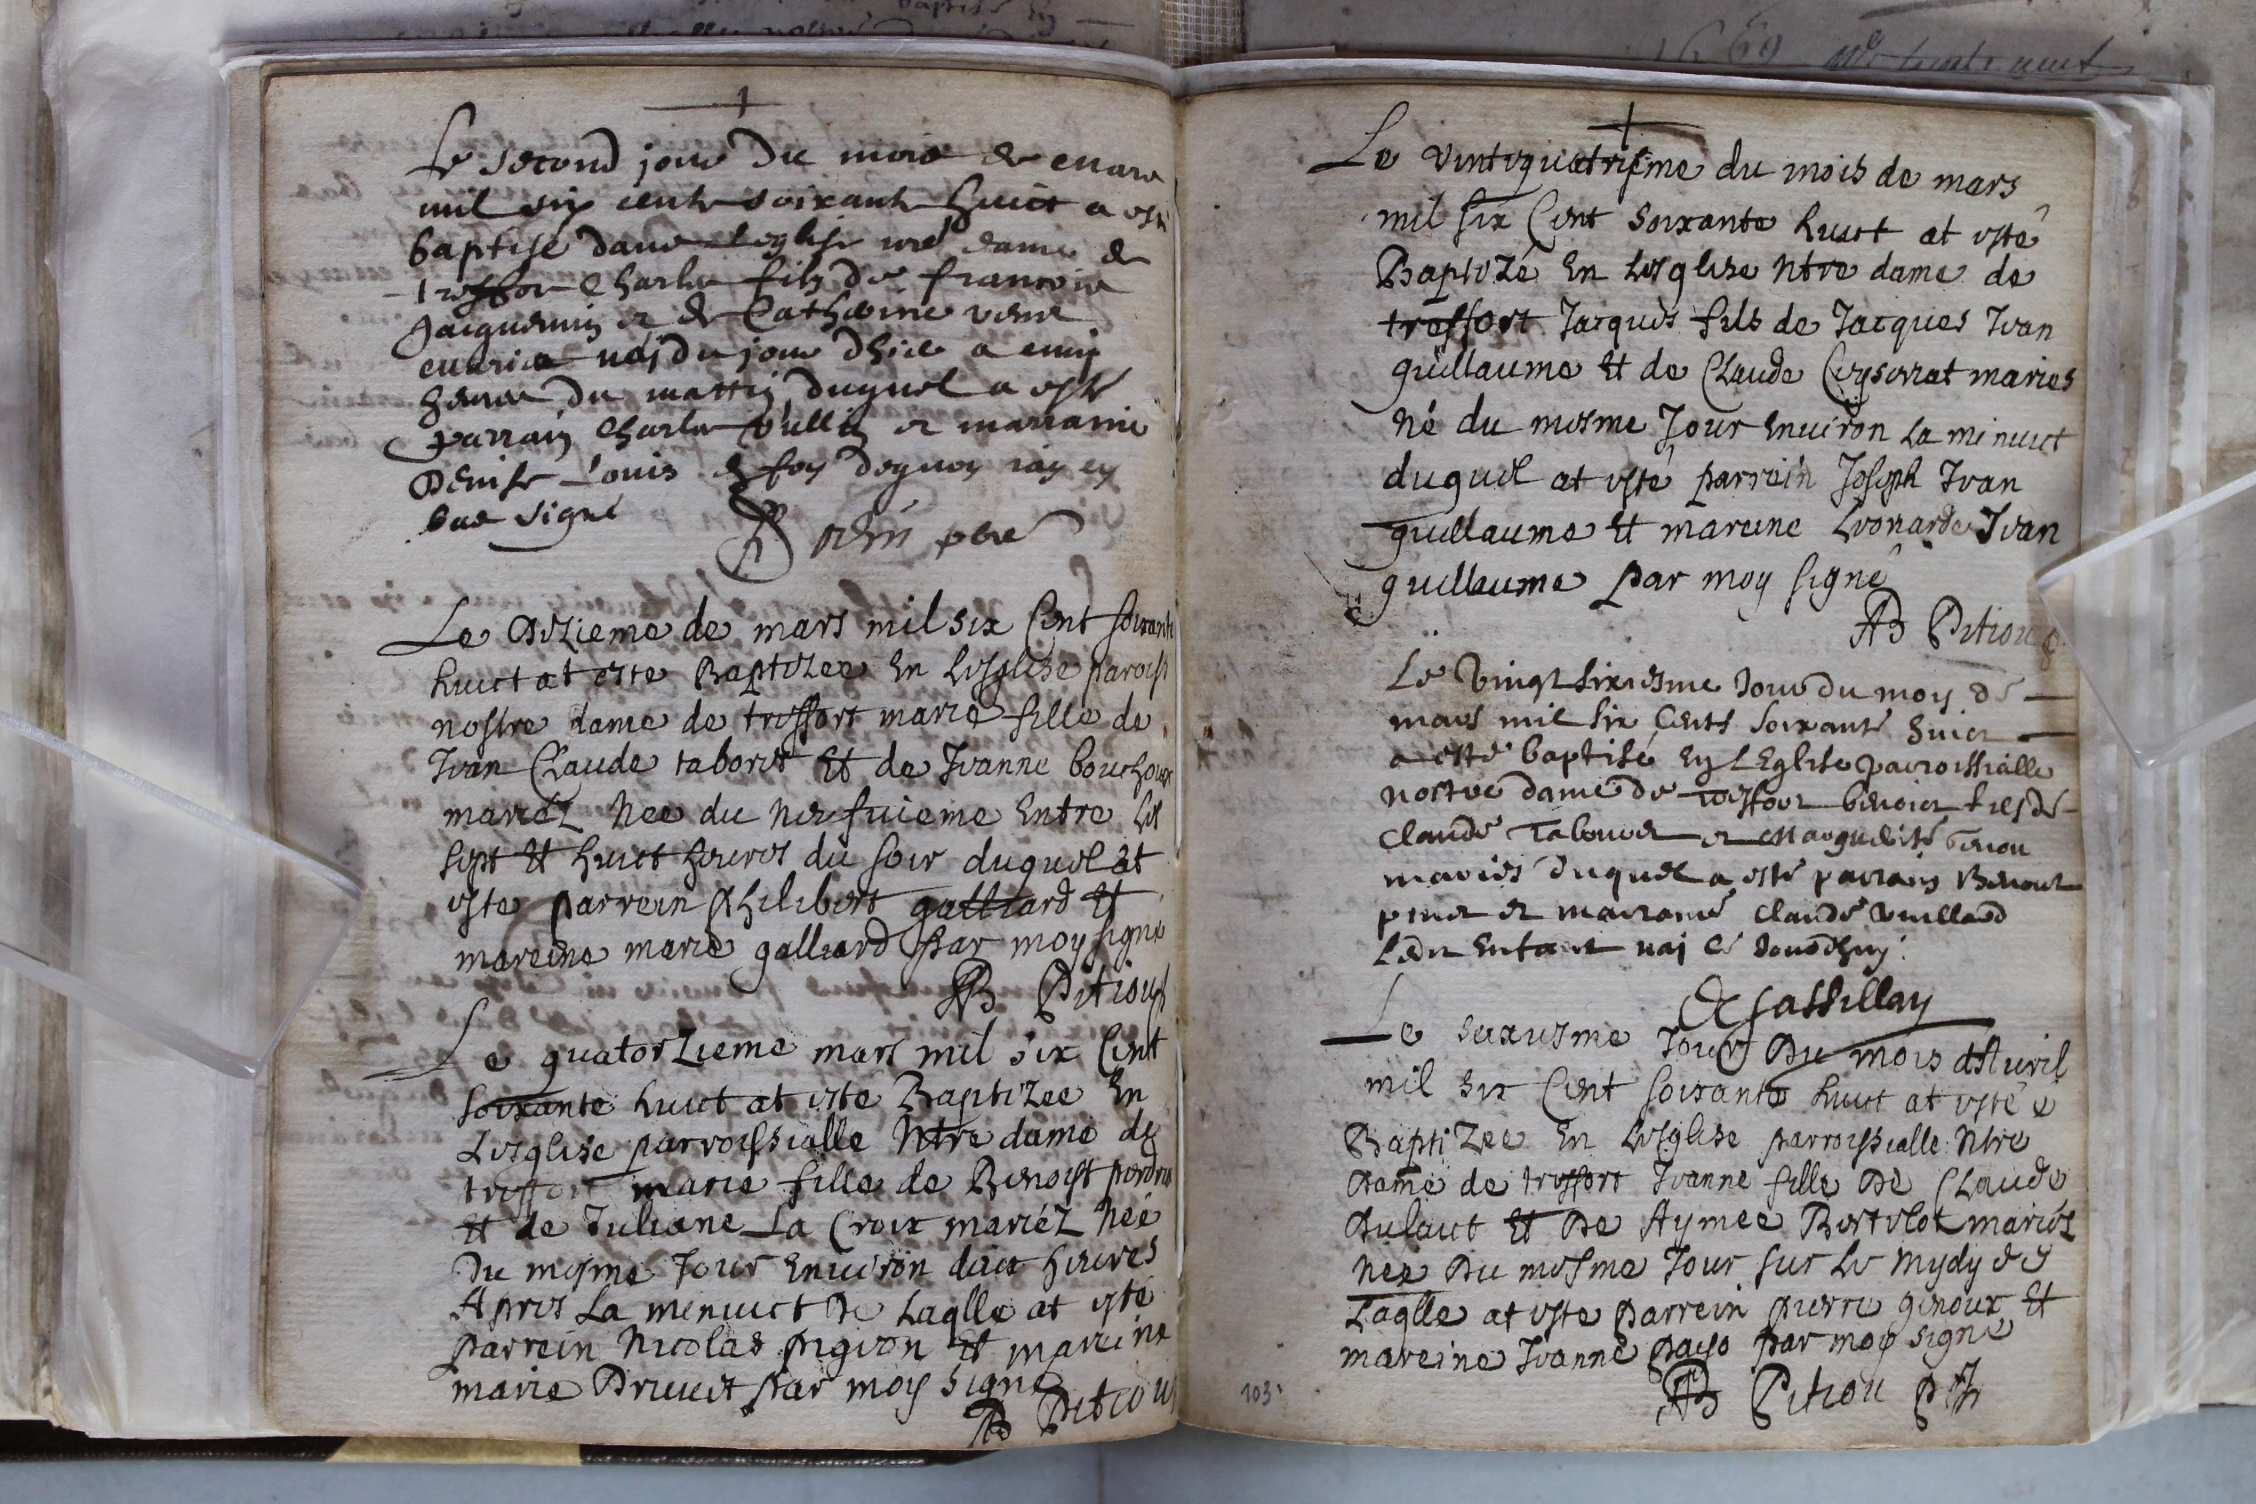 Le second jour du mois de mars
mil six cents soixante huict a esté
baptisé dans leglise nre dame de
treffort Charle fils de francois
Jacquemin et de Catherine
mariés naj du jour dhier a cinq
heures du mattin duquel a esté
parrain Charle Vullin et marraine
Denise Louis en foy dequoy iay cy
bas signé
Le dizieme de mars mil six Cent soixante
huict at este Baptizee En Lesglise paroiss
nostre dame de treffort marie fille de
Jean Claude taboret Et de Jeanne bouchoux
mariéz Nee du neufuieme Entre les
sept Et huict heures du soir duquel at
este parrein philibert galliard Et
mareine marie galliard par moy signé
AB Pitiou
Le quatorzieme mars mil six Cent
soixante huict at esté Baptizee En
Lesglise parroissialle Ntre dame de
treffort marie fille de Benoist perdrix
Et de Juliane La Croix mariéz Neé
Du mesme Jour Enuiron dix heures
Apres La menuict De Laqlle at esté
parrein Nicolas pigion Et mareine
marie Druuet par moy signé
AB Pitiou
Le vintequatriesme du mois de mars
mil six Cent soixante huict at esté
Baptizé En Lesglise Ntre dame de
treffort Jacques fils de Jacques Jean
guillaume Et de Claude Cuysonat mariés
Né du mesme Jour Enuiron La minuict
duquel at esté parrein Joseph Jean
guillaume Et mareine Leonarde Jean
guillaume par moy signé
AB Pitiou
Le Vingt sixiesme Jour du moy de
mars mil six Cents soixante huict
a esté baptisé En LEglise parroissialle
nostre dame de treffort benoict filz de
Claude Tabouret et Marguerite
mariés duquel a esté parrain Benoict
et marraine Claude Vuillard
Ledit Enfant naj Ce Jourdhuy
Cassillay
Le sixiesme Jour Du mois dAuril
mil six Cent soixante huict at esté
Baptizee En Lesglise parroissialle Ntre
Dame de treffort Jeanne fille De Claude
Dulaut Et De Aymee Bertelot mariéz
Neé Du mesme Jour sur Le mydy de
Laqlle at este parrein pierre genoux Et
mareine Jeanne payo par moy signé
AB Pitiou
103